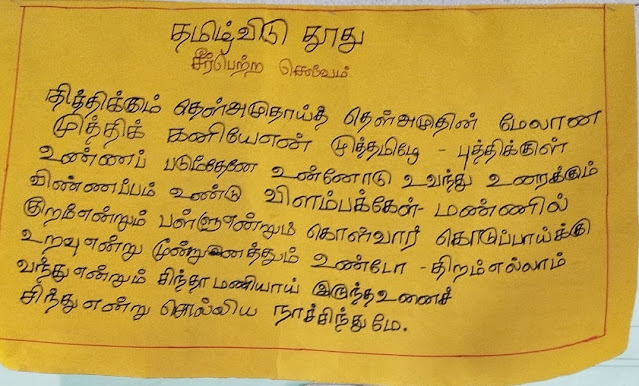 தமிழ்விடு தூது
சீர்பெற்ற செல்வம்
தித்திக்கும் தெள்அமுதாய்த் தெள்அமுதின் மேலான
முத்திக் கனியேஎன் முத்தமிழே - புத்திக்குள்
உண்ணப் படும்தேனே உன்னோடு உவந்து உரைக்கும்
விண்ணப்பம் உண்டு விளம்பக்கேள்- மண்ணில்
குறம்என்றும் பள்ளுஎன்றும் கொள்வார் கொடுப்பாய்க்கு
உறவுஎன்று மூன்றுஇனத்தும் உண்டோ - திறம்எல்லாம்
வந்துஎன்றும் சிந்தாமணியாய் இருந்தஉனைச்
சிந்துஎன்று சொல்லிய நாச்சிந்துமே.